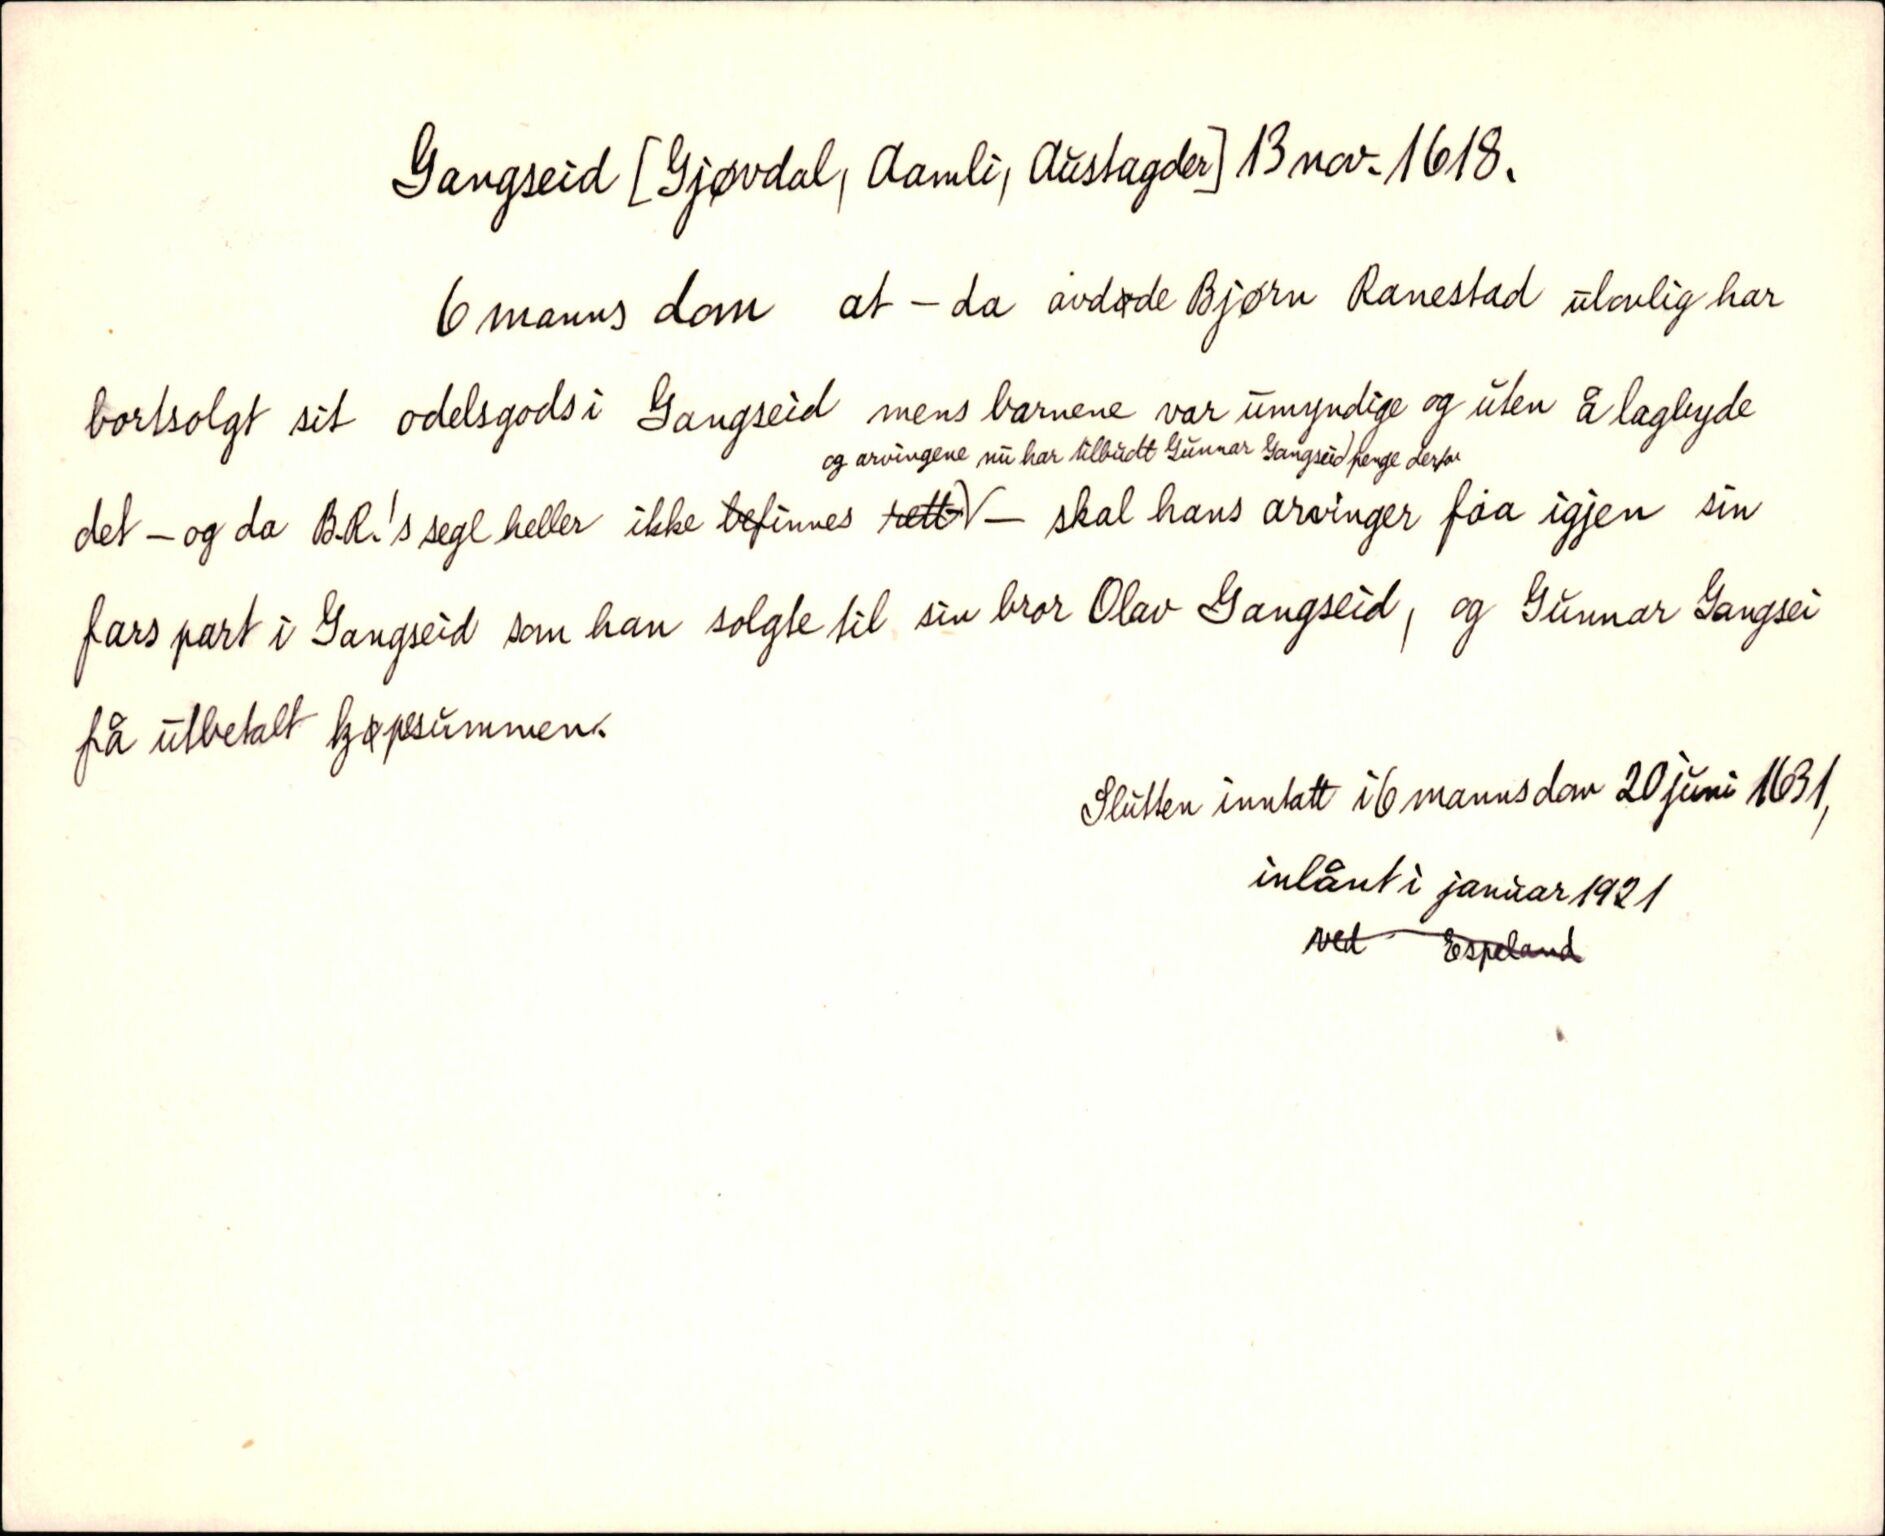 Gangseid [Gjøvdal, Aamli, Austagder] 13 nov. 1618.
6 manns dom at – da avdøde Bjørn Ranestad ulovlig har
bortsolgt sit odelsgods i Gangseid mens barnene var umyndige og uten å lagbyde
og arvingene nu har tilbudt Gunnar Gangseid penge derfor
det – og da B.R.'s segl heller ikke befinnes rett – skal hans arvinger faa igjen sin
fars part i Gangseid som han solgte til sin bror Olav Gangseid, og Gunnar Gangsei
få utbetalt kjøpesummen.
Slutten inntatt i 6 manns dom 20 juni 1631,
inlånt i januar 1921
ved Espeland